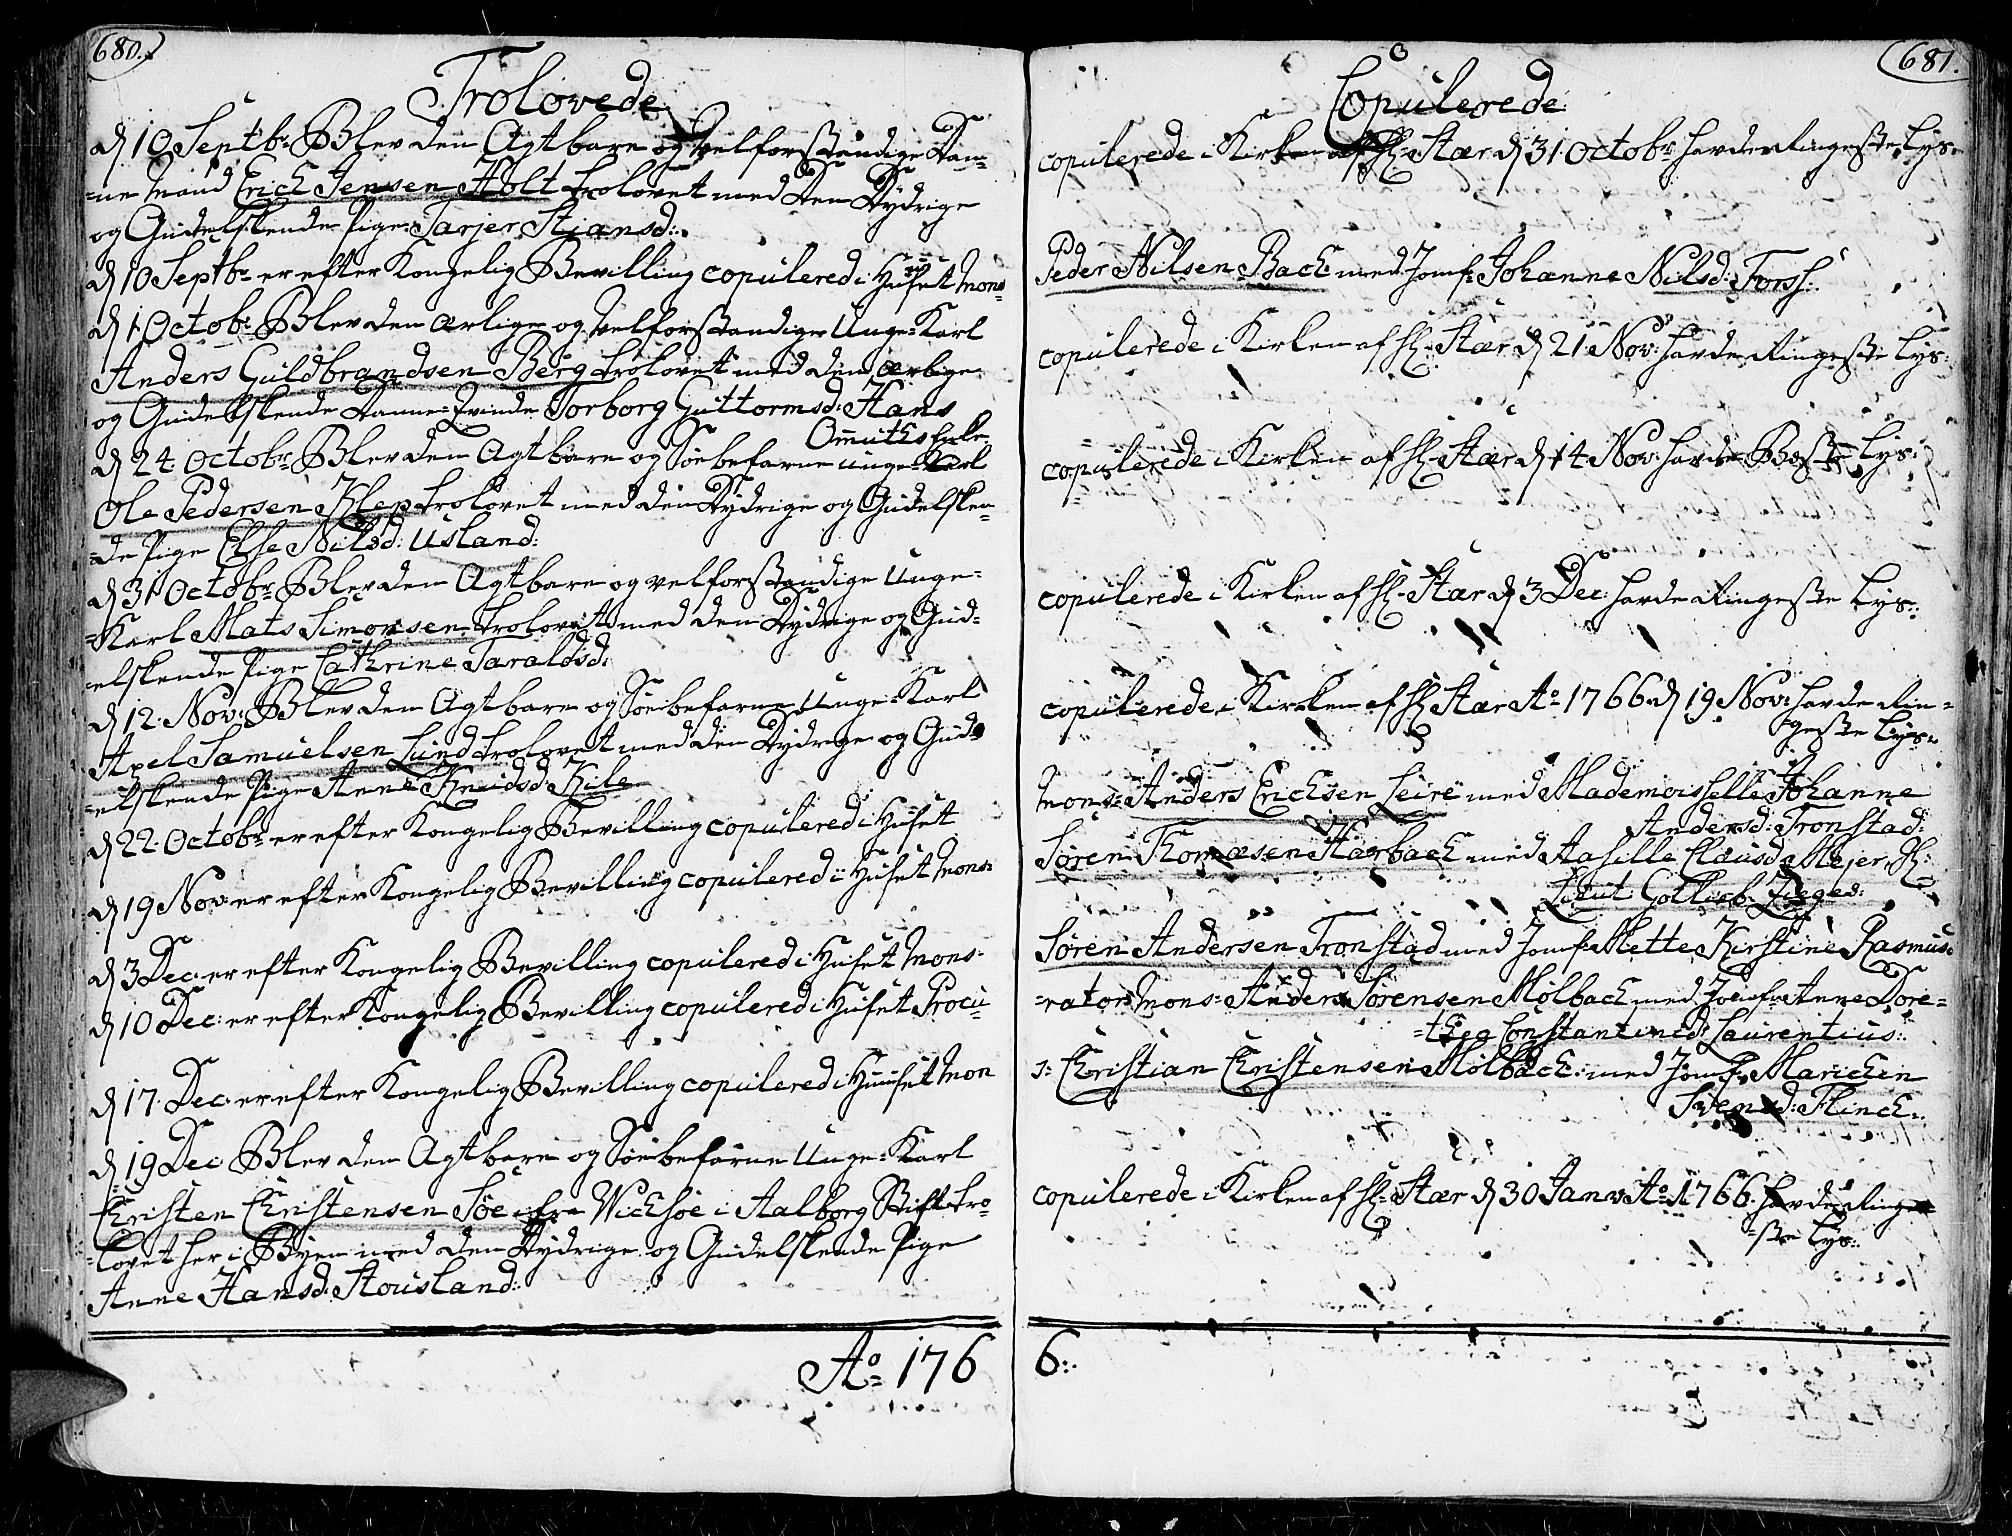 680.
Trolovede
d 10 Septbr: Blev den Agtbare og Velforstandige Dan=
=ne Mand Erich Jensen Holt trolovet med Den Dydrige
og Gudelskende Pige Tarjer Stiansd:
d 10 Septbr er efter Kongelig Bevilling copulered i Huset Mons:
d 1. Octobr: Blev den ærlige og Velforstandige Unge-Karl
Anders Guldbrandsen Berg trolovet med den ærlige
og Gudelskende Danne-Qvinde Torborg Guttormsd: Hans
Omuths Enke
d 24 Octobr: Blev den Agtbare og Søebefarne unge Karl
Ole Pedersen Klep trolovet med den Dydrige og Gudelsken=
=de Pige Else Nilsd: Usland:
d 31 Octobr: Blev den Agtbare og velforstandige Unge=
=Karl Mats Simonsen trolovet med den Dydrige og Gud=
elskende Pige Cathrine Taraldsd:
d 12. Nov: Blev den Agtbare og Søebefarne Unge-Karl
Axel Samuelsen Lund trolovet med den Dydrige og Gud=
=elskende Pige Anne Knudsd: Kile
d 22. Octobr er efter Kongelig Bevilling copulered i Huset
d 19 Nov: er efter Kongelig Bevilling copulered i Huset Mons:
d 3 Dec: er efter Kongelig Bevilling copulered i Huset Mons:
d 10 Dec: er efter Kongelig Bevilling copulered i Huset Procu=
d 17. Dec: er efter Kongelig Bevilling copulered i Huuset Mon
d 19 Dec Blev den Agtbare og Søebefarne Unge-Karl
Christen Christensen Søe fra Wichsøe i Aalborg Stift tro=
=lovet her i Byen med den Dydrige og Gudelskende Pige
Anne Hansd: Stousland:
Ao 176
681.
Copulerede
copulerede i Kirken af Hr Stær d 31 Octobr havde Ringeste Lys:
Peder Nilsen Bach med Jomf: Johanne Nilsd: Forsh:
copulerede i Kirken af Hr Stær d 21 Nov: havde Ringeste Lys:
copulerede i Kirken af Hr Stær d 14 Nov: havde Beste Lys:
copulerede i Kirken af Hr Stær d 3 Dec: havde Ringeste Lys:
copulerede i Kirken af Hr Stær Ao 1766. d 19 Nov: havde Rin=
geste Lys:
Mons: Anders Erichsen Leire med Mademoisselle Johanne
Andersd: Tronstad:
Søren Thomæsen Hærbach med Aasille Clausd Mejer Hr:
Lieut Gottlieb Zieglers:
Søren Andersen Tronstad med Jomf: Mette Kirstine Rasmus:
=rator Mons: Anders Sørensen Mølbach med Jomf: Anne Dore=
=thea Constantinsd: Laurentius:
s: Christian Christensen Mølbach: med Jomf: Marichen
Svensd: Flinch:
copulerede i Kirken af Hr Stær d 30 Janv: Ao 1766. havde Ringe=
=ste Lys:
6: